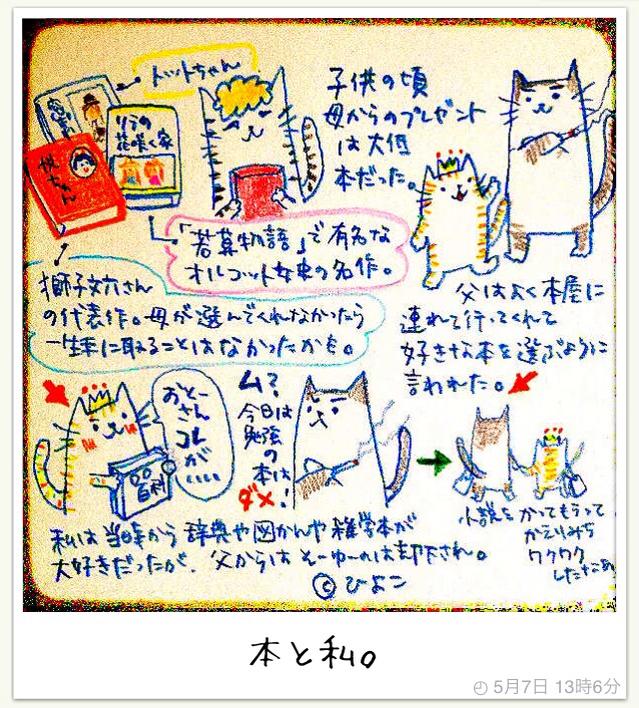 トットちゃん
リラの
花咲く家
悦ちゃん
子供の頃
母からのプレゼント
は大低
本だった。
「若草物語」で有名な
オルコット女史の名作。
獅子文六さん
の代表作。母が選んでくれなかったら
一生手に取ることはなかったかも。
父はよく本屋に
連れて行ってくれて
好きな本を選ぶように
言われた。
おとー
さん
コレ
が
いい
百科
ム?
今日は
勉強
の
本は
ダメ!
小説を かってもらって
かえりみち
ワクワク
した
私は当時から 辞典や図かんや 雑学本が
大好きだったが、父からは そーゆーのは却下され。
©ひよこ
本と私。
5月7日 13時6分